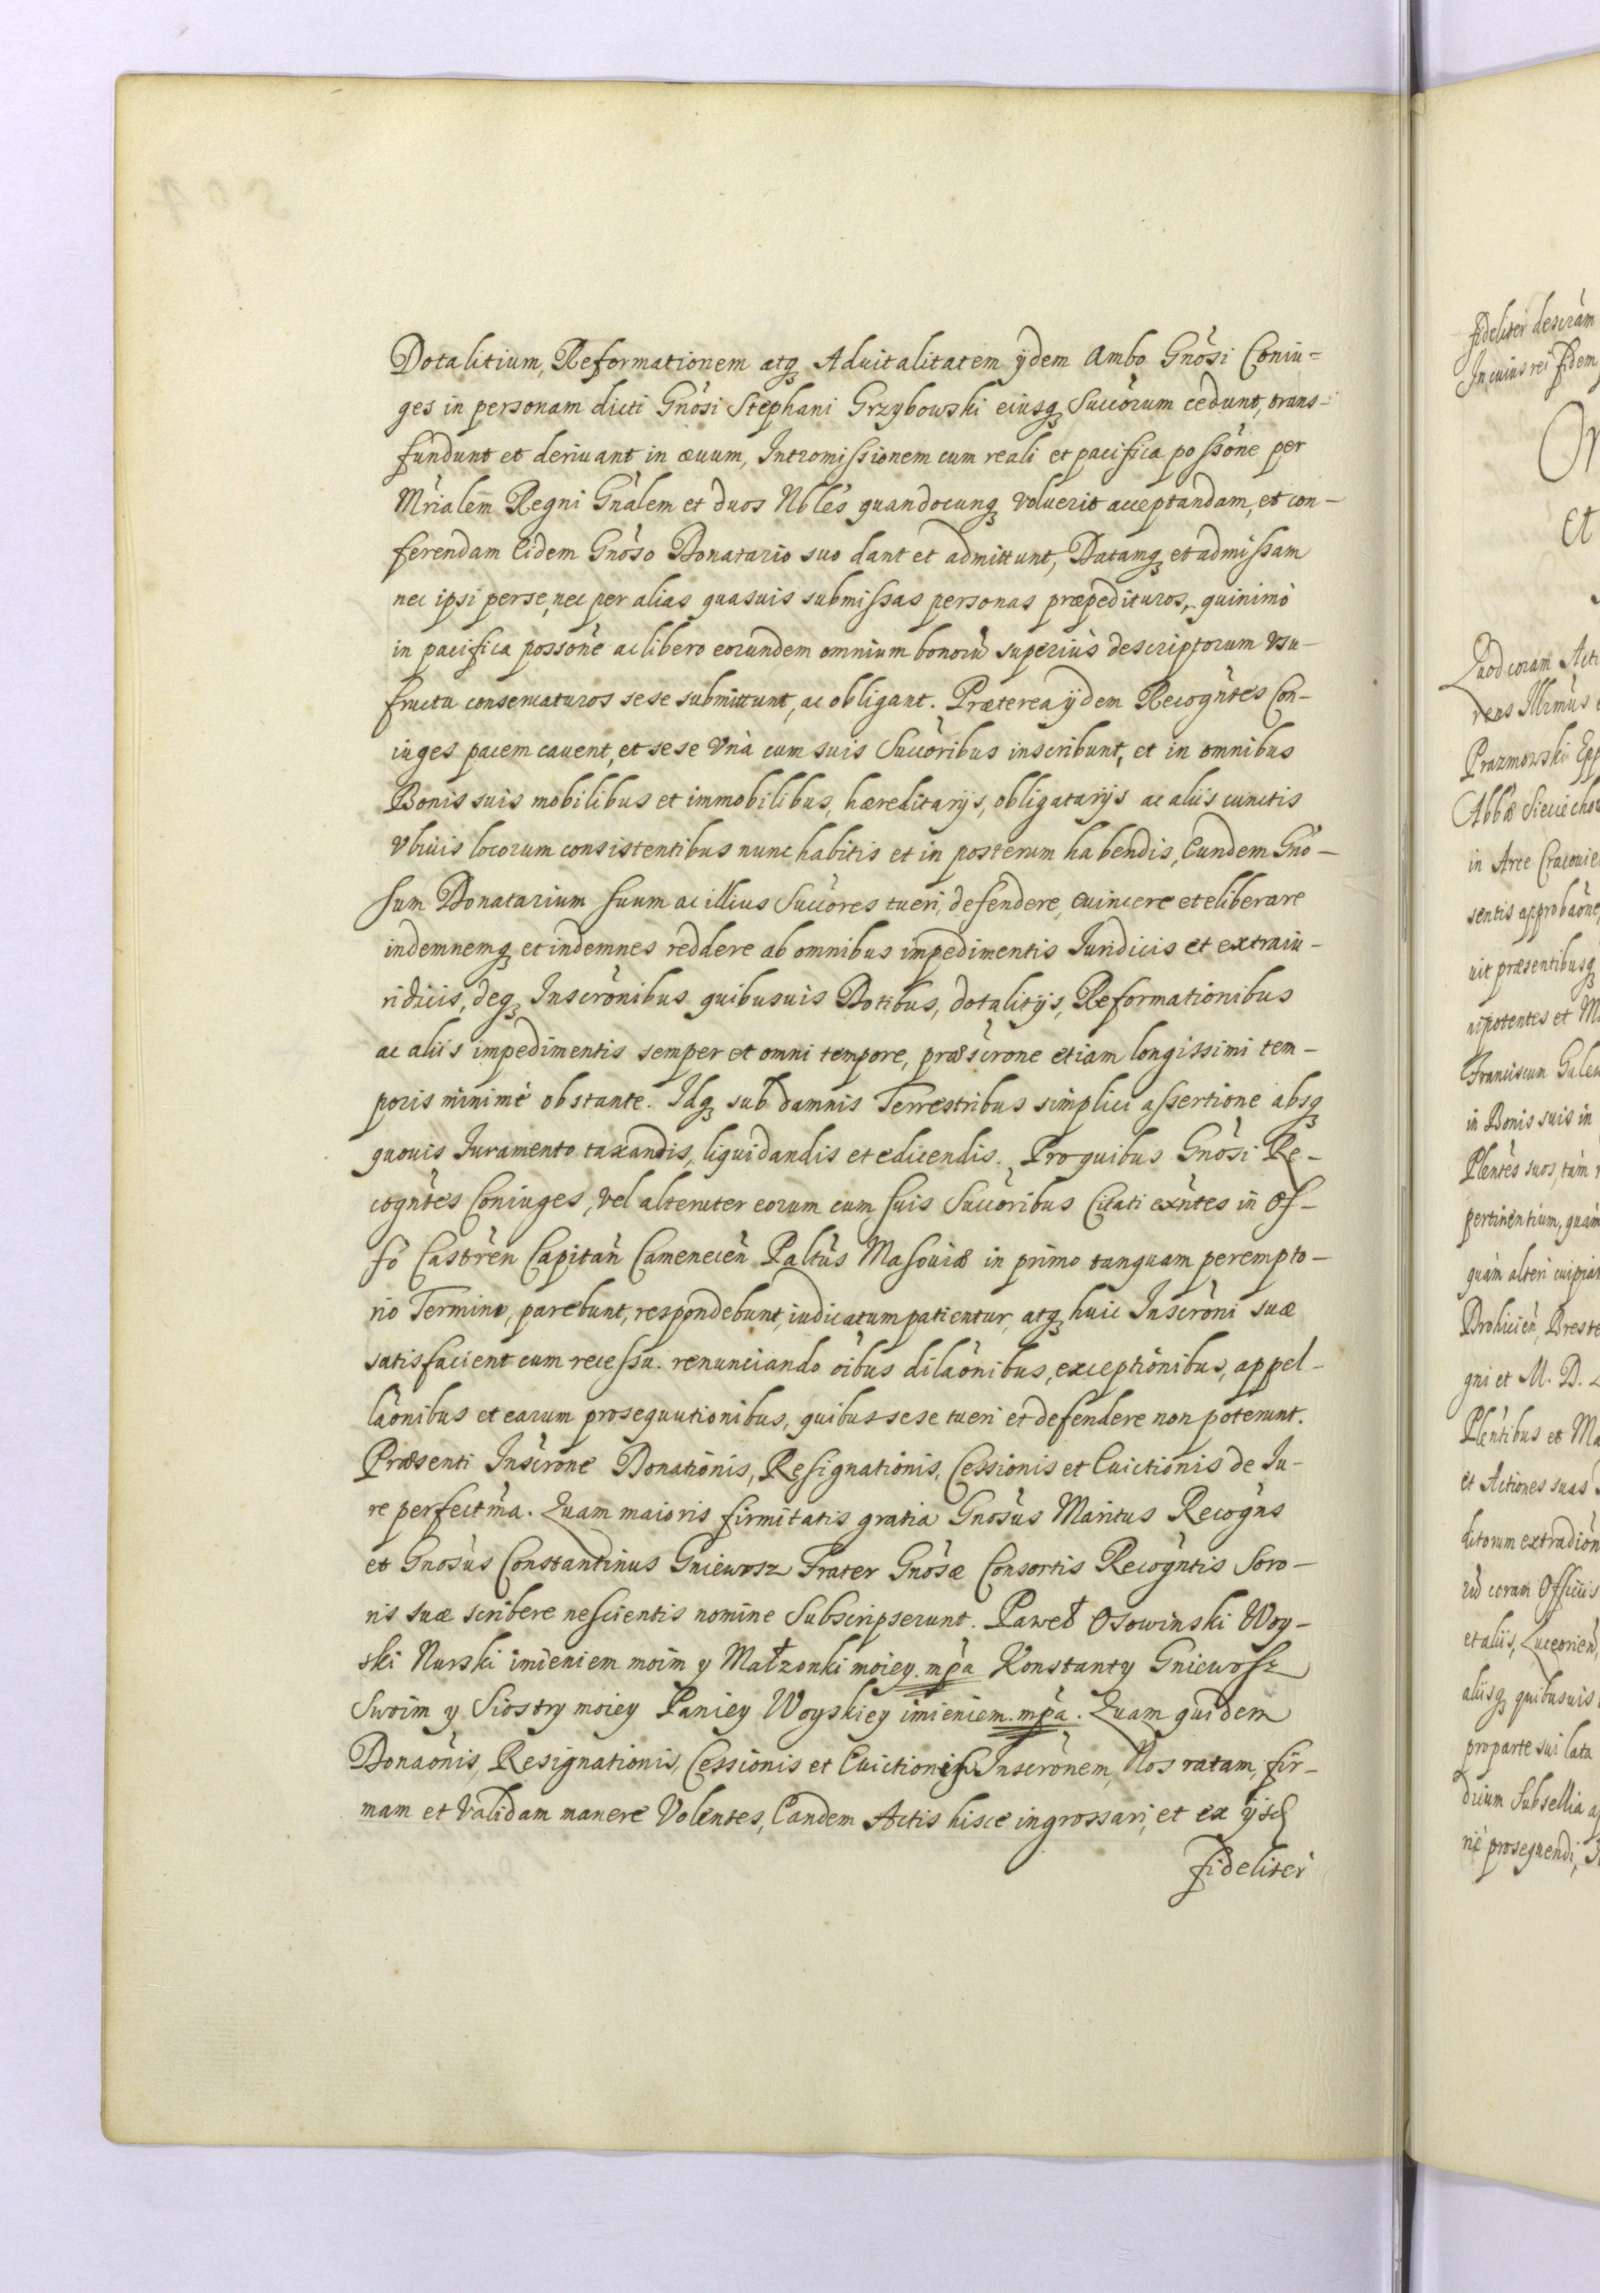 Dotalitium, Reformationem atq Aduitalitatem ijdem Ambo Gnosi Coniu=
ges in personam dicti Gnosi Stephani Grzybowski eiusq Succorum cedunt, trans-
fundunt et deriuant in æuum, Intromissionem cum reali et pacifica possone per
Mrialem Regni Gnalem et duos Nbles quandocunq voluerit acceptandam, et con-
ferendam Eidem Gnoso Donatario suo dant et admittunt, Datamq et admissam
nec ipsi per se, nec per alias quasuis submissas personas præpedituros, quinimò
in pacifica possone ac libero eorundem omnium bonorũ superiùs descriptorum vsu-
fructu conseruaturos sese submittunt, ac obligant. Præterea ijdem Recogntes Con-
iuges pacem cauent, et sese vnà cum suis Succoribus inscribunt, et in omnibus
Bonis suis mobilibus et immobilibus, hæreditarijs, obligatarijs ac aliis cunctis
vbiuis locorum consistentibus nunc habitis et in posterum habendis, Eundem Gno-
sum Donatarium suum ac illius Succores tueri, defendere, euincere et eliberare
indemnemq et indemnes reddere ab omnibus impedimentis Iuridicis et extraiu-
ridicis, deq Inscronibus quibusuis Dotibus, dotalitijs, Reformationibus
ac aliis impedimentis semper et omni tempore, præscrone etiam longissimi tem-
poris minimè obstante. Idq sub damnis Terrestribus simplici assertione absq
quouis Iuramento taxandis, liquidandis et edicendis. Pro quibus Gnosi Re-
cogntes Coniuges, vel alteruter eorum cum suis Succoribus Citati exntes in Of-
fo Castren Capitan Camenecen Paltus Masouiæ in primo tanquam perempto-
rio Termino, parebunt, respondebunt, iudicatum patientur, atq huic Inscroni suæ
satisfacient cum recessu. renunciando oibus dilaonibus, exceptionibus, appel-
laonibus et earum prosequutionibus, quibus sese tueri et defendere non poterunt.
Præsenti Inscrone Donationis, Resignationis, Cessionis et Euictionis de Iu-
re perfectma. Quam maioris firmitatis gratia Gnosus Maritus Recogns
et Gnosus Constantinus Gniewosz Frater Gnosæ Consortis Recogntis Soro-
ris suæ scribere nescientis nomine Subscripserunt. Paweł Osowinski Woy-
ski Nurski imieniem moim y Małzonki moiey. mpa Konstanty Gniewosz
Swoim y Siostry moiey Paniey Woyskiey imieniem. mpa. Quam quidem
Donaonis, Resignationis, Cessionis et Euictionis Inscronem, Nos ratam, fir-
mam et validam manere Volentes, Eandem Actis hisce ingrossari, et ex ijsd
fideliter
fideliter descram
In cuius rei fidem
Et
Quod coram Act
rens Illrmus
Prazmowski Epp
in Arce Cracouie
sentis approbaone,
uit præsentibusq
nipotentes et M
in Bonis suis in
Plentes suos, tam
pertinentium, quam
quàm alteri cuipiam
gni et M. D.
Plentibus et Ma
et Actiones suas
ctorum extradion
rũ coram Officiis
et aliis, Luceorien,
aliisq quibusuis
pro parte sui lata
rie prosequendi,